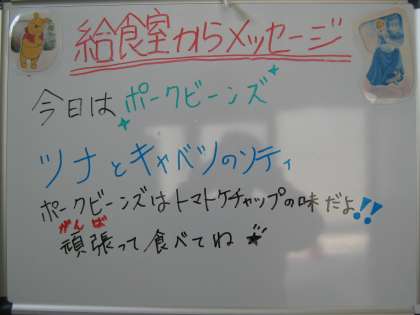 給食室からメッセージ
今日はポークビーンズ
ツナとキャベツのソティ
ポークビーンズはトマトケチャップの味だよ!!
がんば
頑張って食べてね